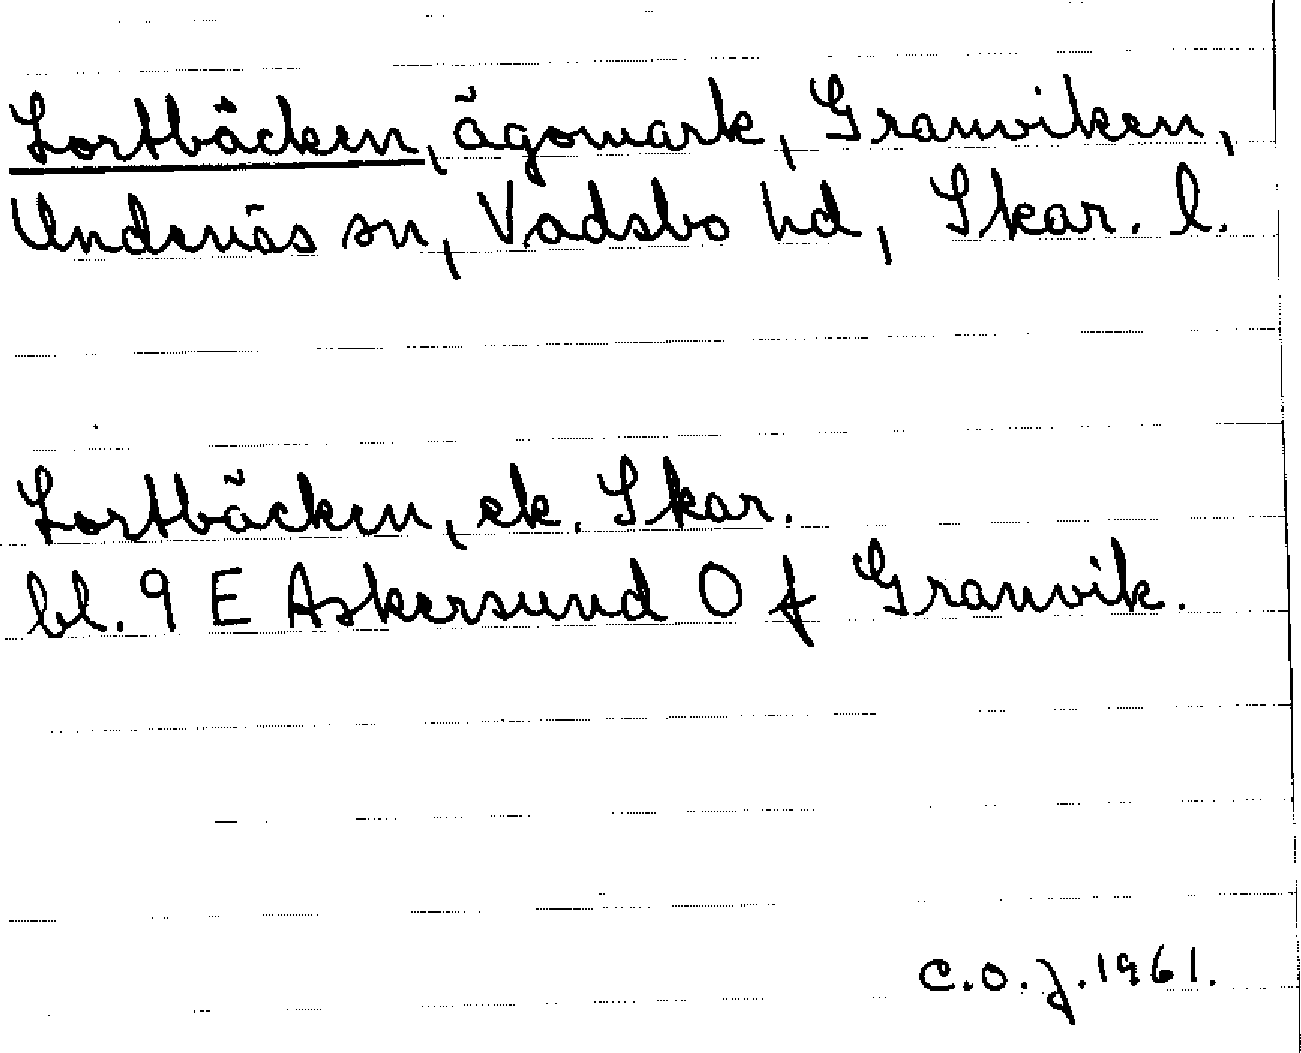 Lortbäcken, ägomark, Granviken,
Undenäs sn, Vadsbo hd, Skar. l.
Lortbäcken, ek. Skar.
bl. 9 E Askersund O f Granvik.
C.O.J. 1961.